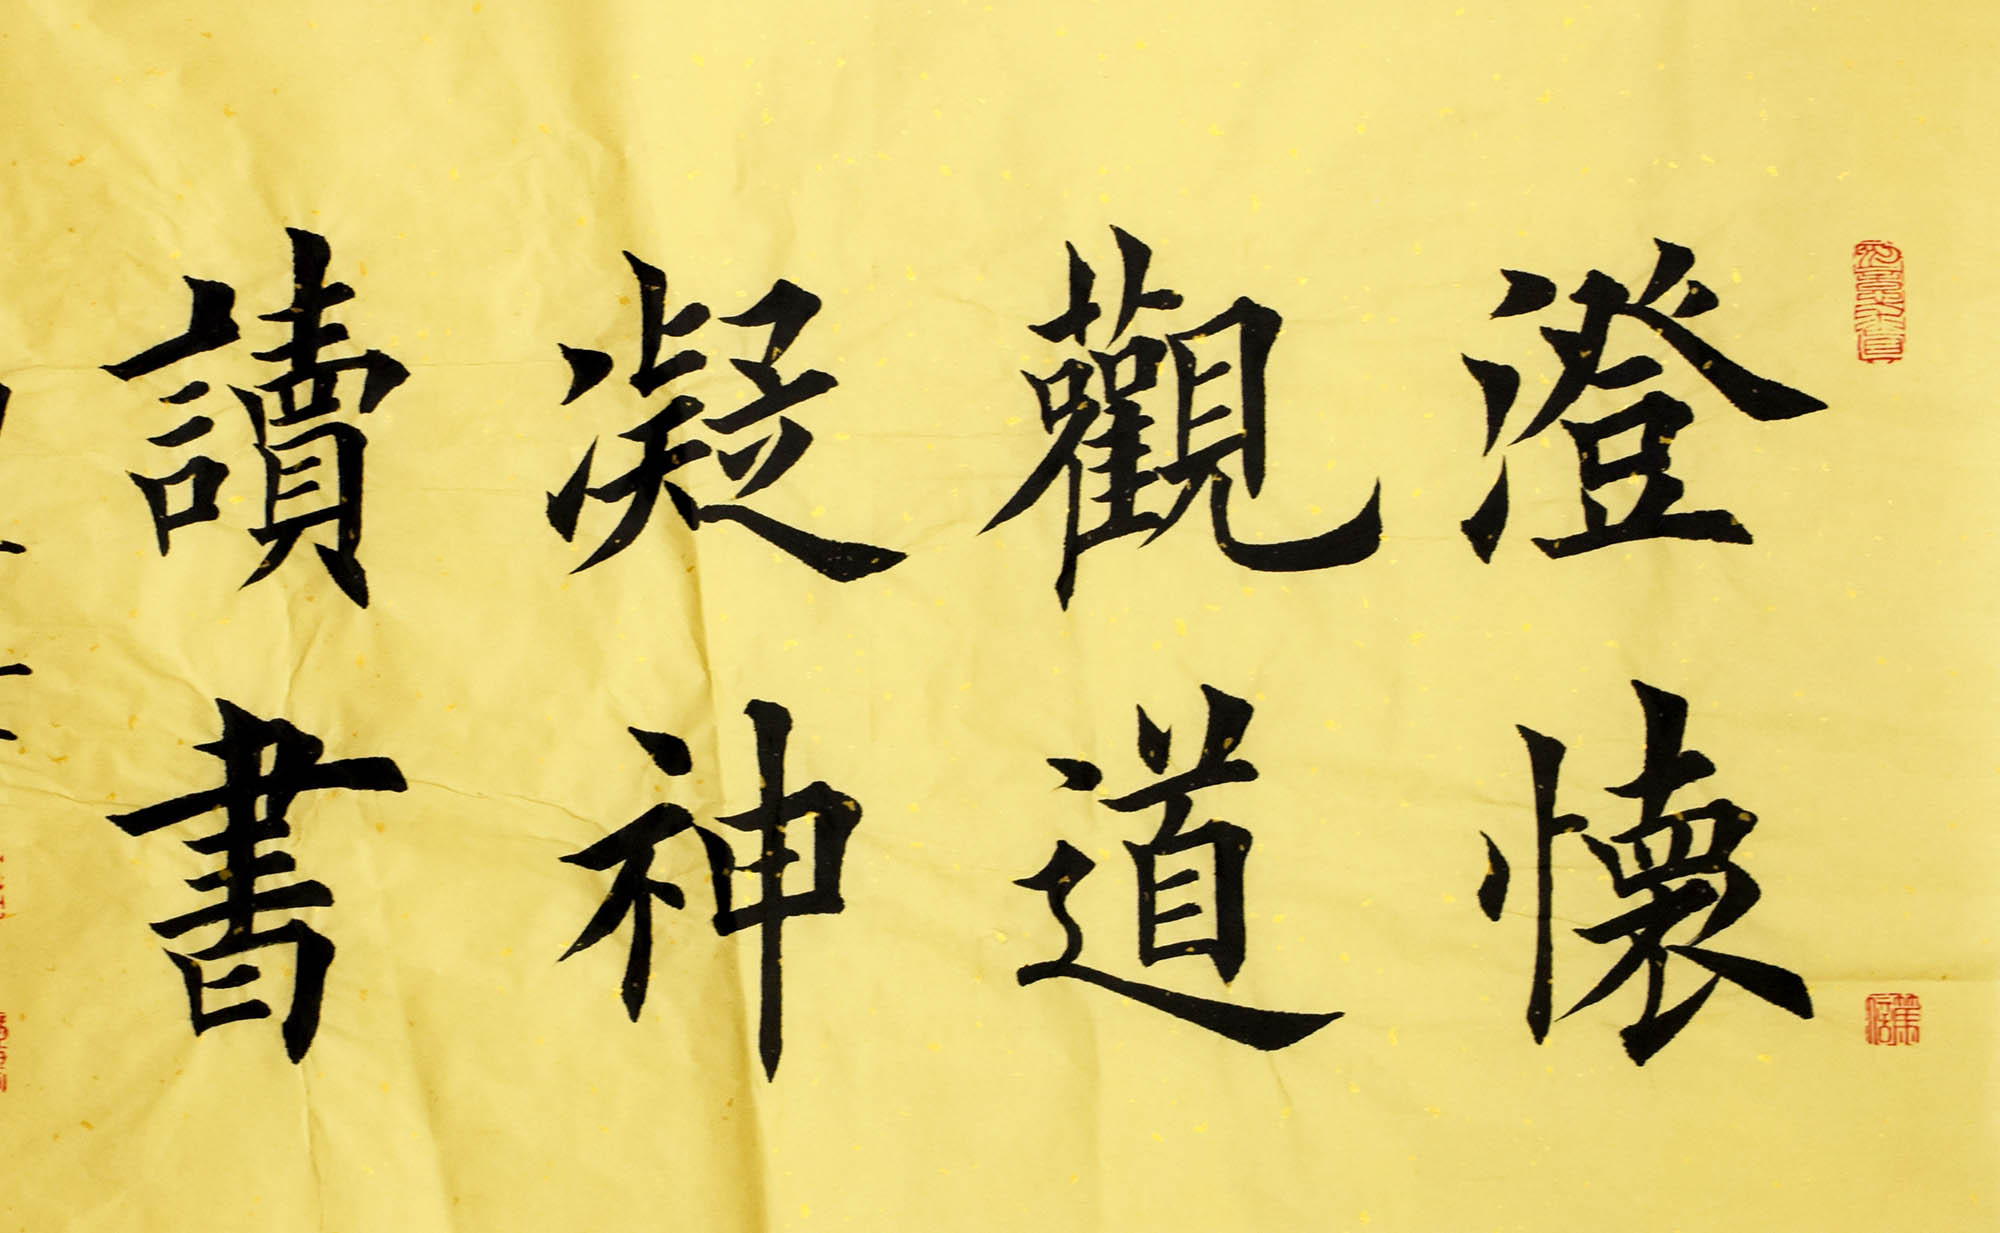 澄懷
觀道
凝神
讀書